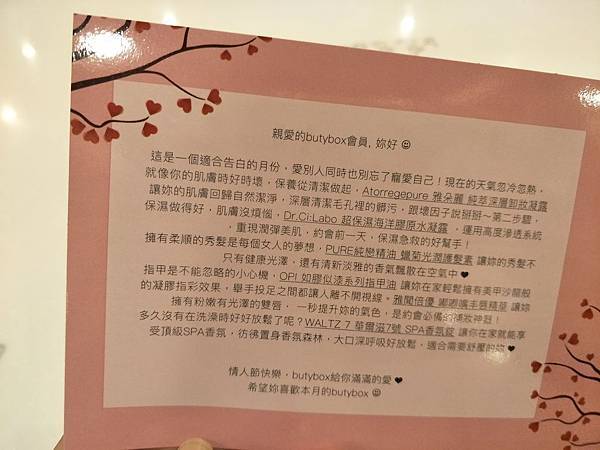 親愛的butybox會員, 妳好☺
這是一個適合告白的月份，愛別人同時也別忘了寵愛自己！現在的天氣忽冷忽熱，
就像你的肌膚時好時壞，保養從清潔做起，Atorregepure 雅朵麗 純萃深層卸妝凝露
讓妳的肌膚回歸自然潔淨，深層清潔毛孔裡的髒污，跟壞因子說掰掰～第二步驟，
保濕做得好，肌膚沒煩惱，Dr.Ci:Labo 超保濕海洋膠原水凝露，運用高度滲透系統
，重現潤彈美肌，約會前一天，保濕急救的好幫手！
擁有柔順的秀髮是每個女人的夢想，PURE純戀精油 蠟菊光潤護髮素 讓妳的秀髮不
只有健康光澤，還有清新淡雅的香氣飄散在空氣中❤
指甲是不能忽略的小心機，OPI 如膠似漆系列指甲油 讓妳在家輕鬆擁有美甲沙龍般
的凝膠指彩效果，舉手投足之間都讓人離不開視線。雅聞倍優 嘟嘟嘴丰唇精華 讓妳
擁有粉嫩有光澤的雙唇，一秒提升妳的氣色，是約會必備的美妝神器！
多久沒有在洗澡時好好放鬆了呢？WALTZ 7 華爾滋7號 SPA香氛錠 讓你在家就能享
受頂級SPA香氛，彷彿置身香氛森林，大口深呼吸好放鬆，適合需要紓壓的妳❤
情人節快樂，butybox給你滿滿的愛❤
希望妳喜歡本月的butybox☺